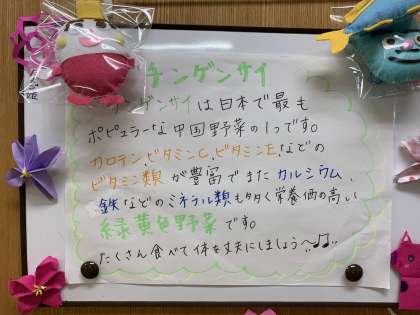 チンゲンサイ
ンゲンサイは日本で最も
ポピュラーな中国野菜の1つです。
カロテン、ビタミンC、ビタミンE、などの
ビタミン類が豊富でまたカルシウム、
鉄などのミネラル類も多く栄養価の高い
緑黄色野菜です。
たくさん食べて体を丈夫にしましょう〜♫